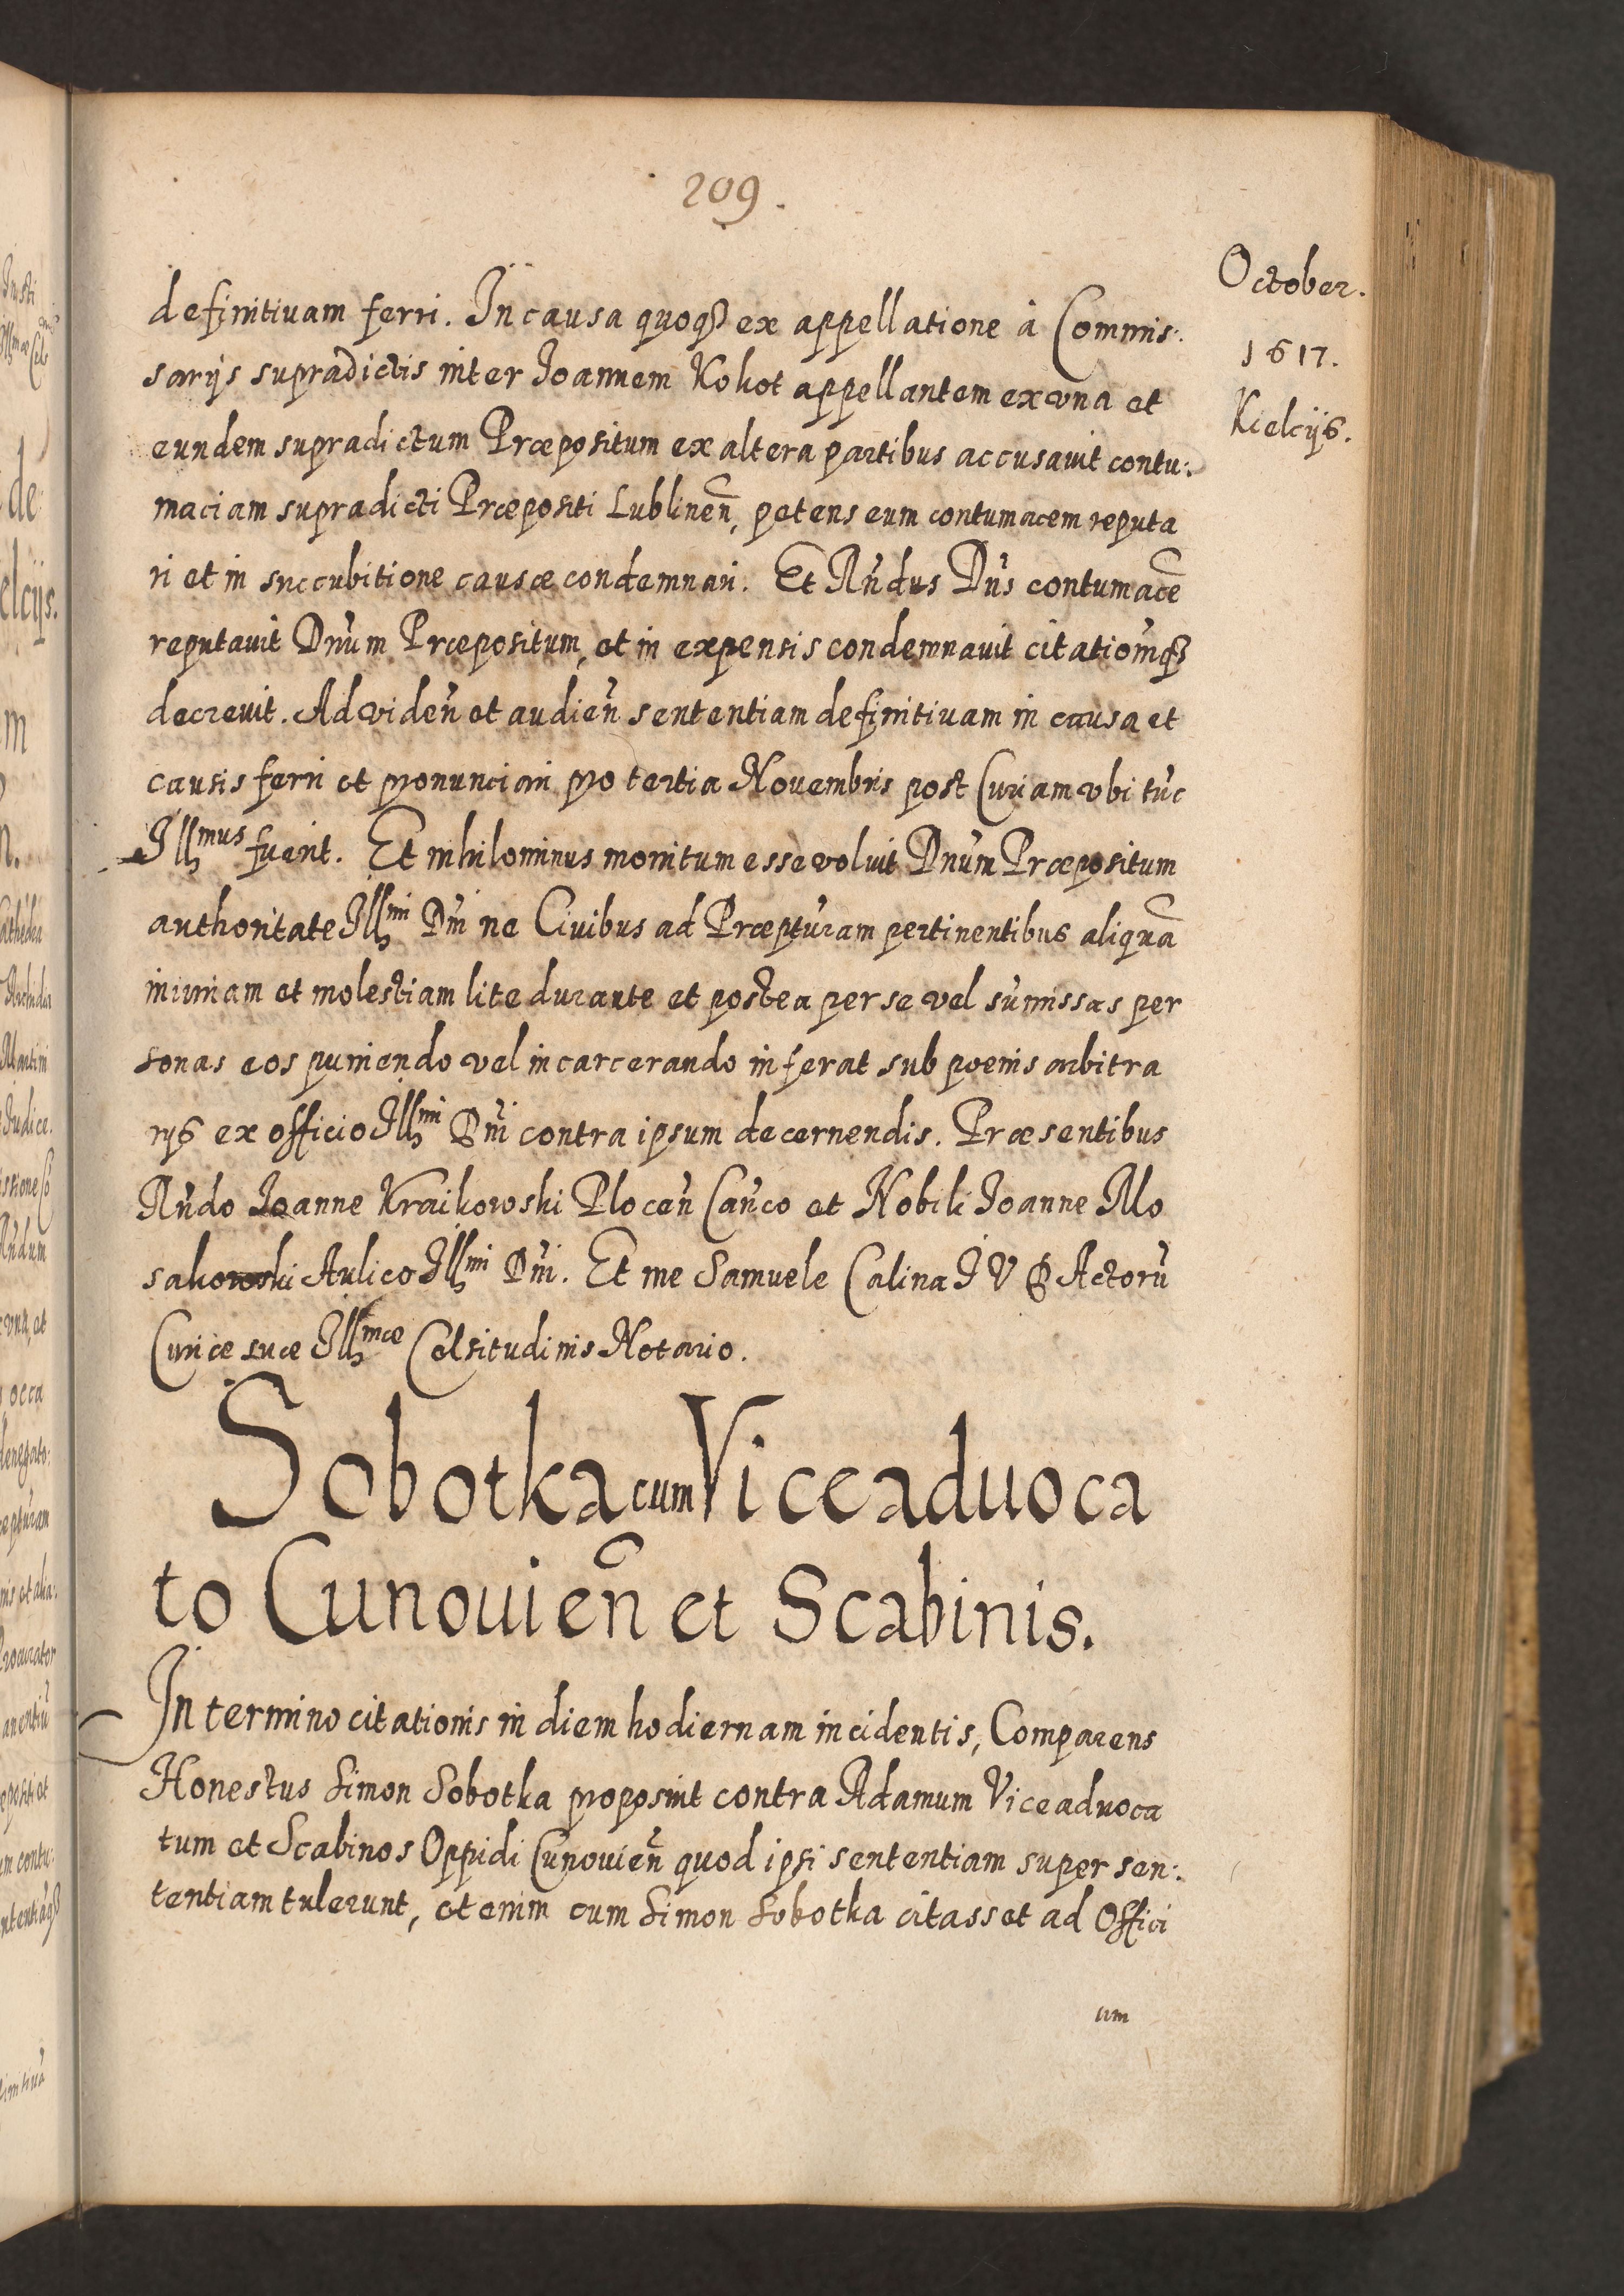 209.
October.
1617.
Kielcijs.
definitiuam ferri. In causa quoqꝫ ex appellatione à Commis:
sarijs supradictis inter Joannem Kokot appellantem ex vna et
eundem supradictum Præpositum ex altera partibus accusauit contu:
maciam supradicti Præpositi Lublineñ, petens eum contumacem reputa
ri et in succubitione causæ condemnari. Et Rńdus Dńs contumacē
reputauit Dnúm Præpositum, et in expensis condemnauit citationḿqꝫ
decreuit. Ad videń et audień sententiam definitiuam in causa et
causis ferri et pronunciari pro tertia Nouembris post Curiam vbi túc
Illmus fuerit. Et nihilominus monitum esse voluit Dnúm Præpositum
authoritate Illmi Dńi ne Ciuibus ad Præptúram pertinentibus aliquā
iniuriam et molestiam lite durante et postea per se vel súmissas per
sonas eos puniendo vel incarcerando inferat sub poenis arbitra
rijs ex officio Illmi Dńi contra ipsum decernendis. Præsentibus
Rńdo Joanne Kraikowski Ploceń Cańco et Nobili Joanne Mo
sakowski Aulico Illmi Dńi. Et me Samuele Calina J V D Actorú
Curiæ suæ Illmæ Celsitudinis Notario.
Sobotka cum Viceaduoca
to Cunouieñ et Scabinis.
In termino citationis in diem hodiernam incidentis, Comparens
Honestus Simon Sobotka proposuit contra Adamum Viceaduoca
tum et Scabinos Oppidi Cunouień quod ipsi sententiam super sen:
tentiam tulerunt, etenim cum Simon Sobotka citasset ad Offici
um